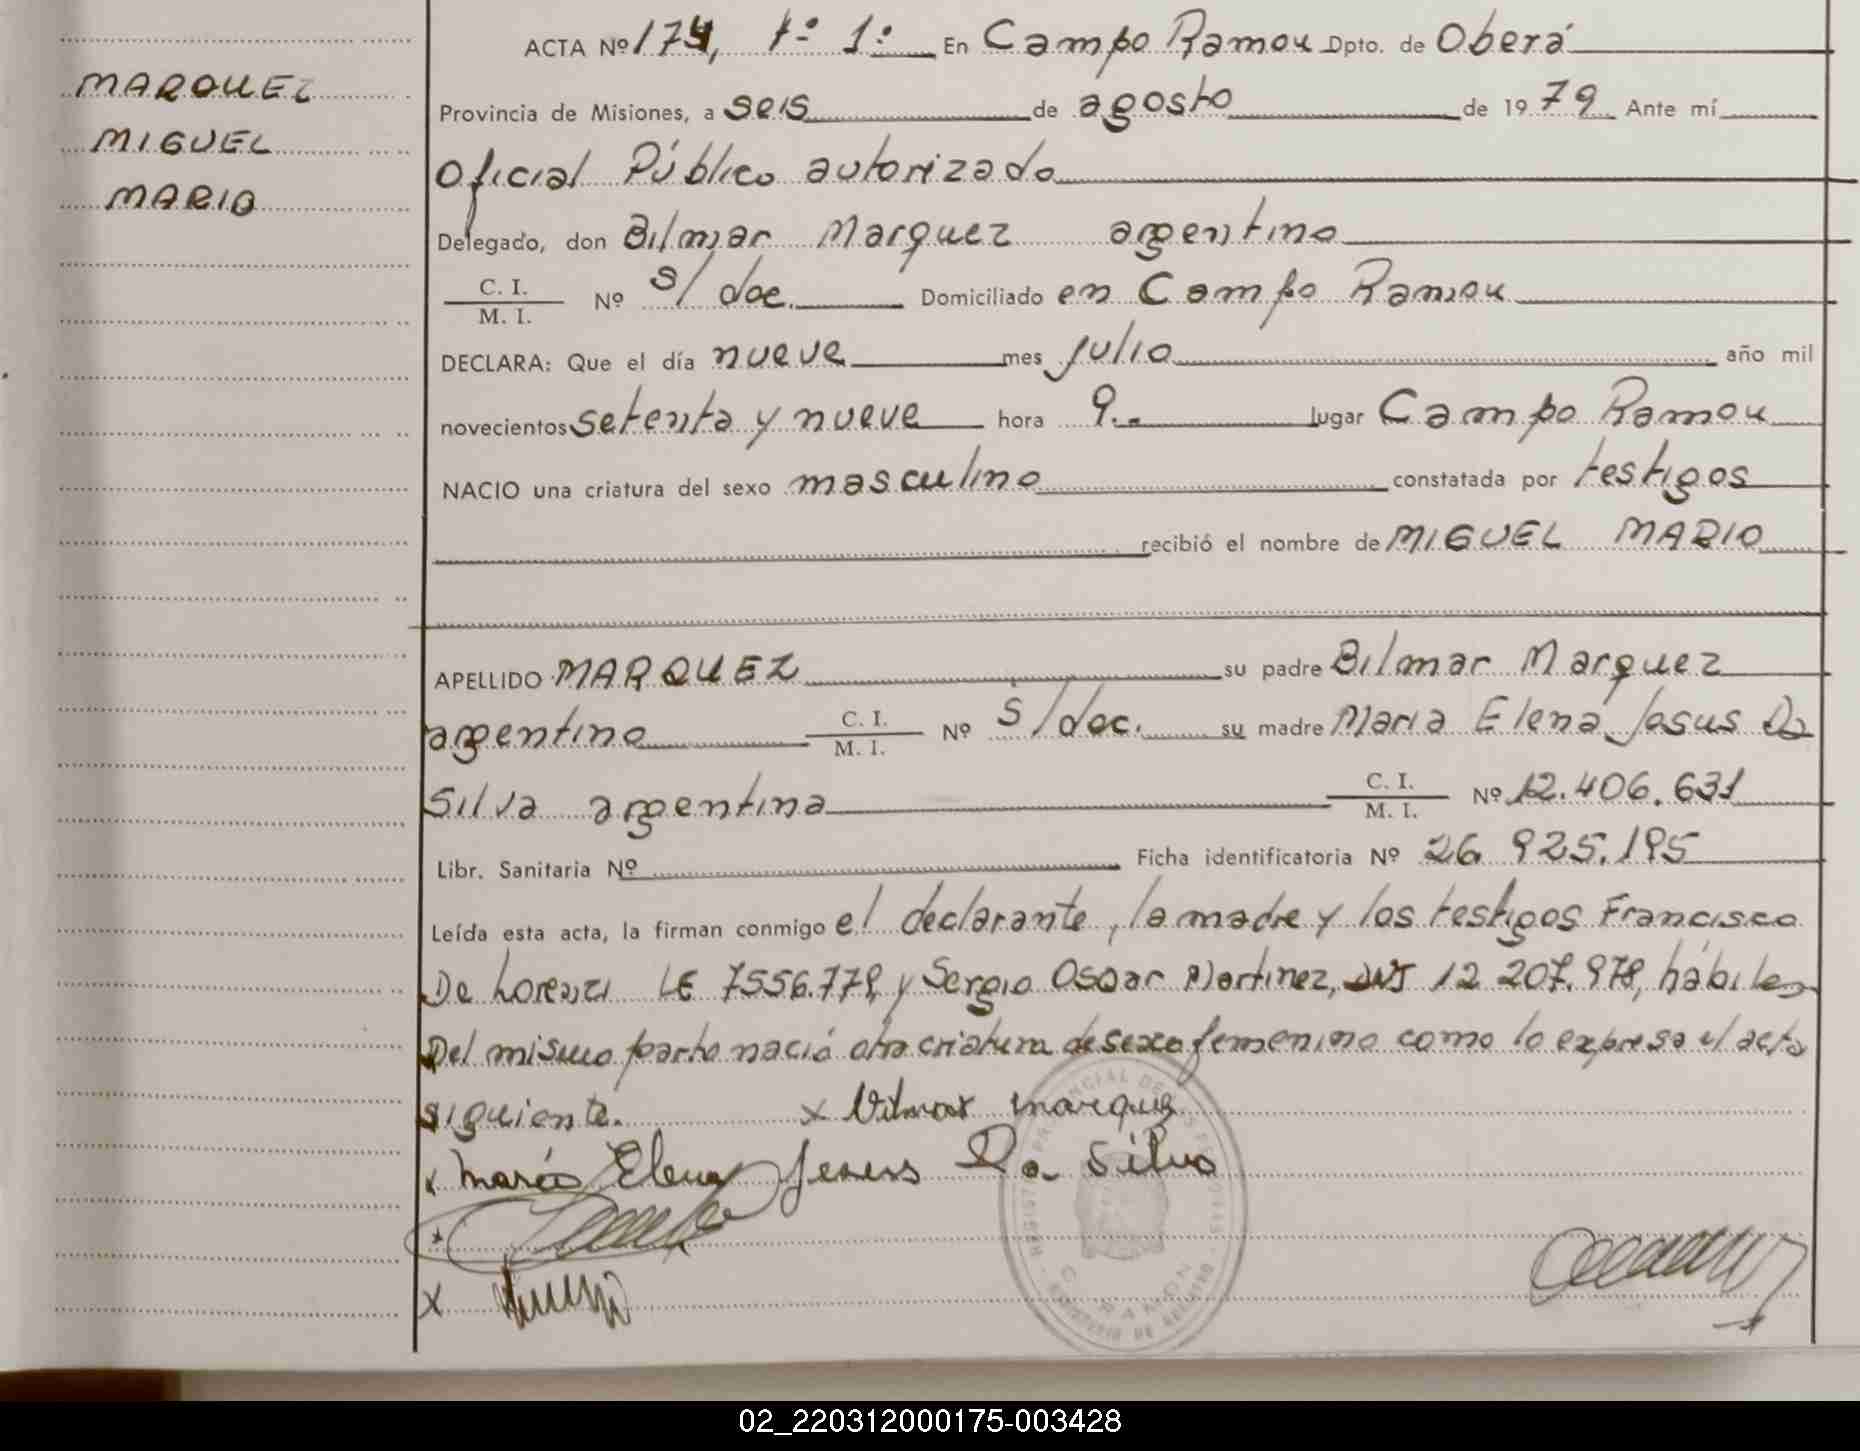 MARQUEZ
MIGUEL
MARIO
ACTA Nº 174, tº 1º En Campo Ramon Dpto. de Oberá
Provincia de Misiones, a seis de agosto de 1979 Ante mí
Oficial Público autorizado
Delegado, don Bilmar Marquez argentino
C. I.
M. I. Nº s/doc. Domiciliado en Campo Ramon
DECLARA: Que el día nueve mes julio año mil
novecientos setenta y nueve hora 9.- lugar Campo Ramon
NACIO una criatura del sexo masculino constatada por testigos
recibió el nombre de MIGUEL MARIO
APELLIDO MARQUEZ su padre Bilmar Marquez
argentino C. I. M. I. Nº s/doc. su madre Maria Elena Jesus Da
Silva argentina C. I. M. I. Nº 12.406.631
Libr. Sanitaria Nº Ficha identificatoria Nº 26 925.195
Leída esta acta, la firman conmigo el declarante, la madre y los testigos Francisco
De Lorenzi LE 7556.779, y Sergio Oscar Martinez, DNI 12 207.978, hábiles
Del mismo parto nació otra criatura de sexo femenino como lo expresa el acta
siguiente. x Vilmar Marquez
x Maria Elena Jesus Da Silva
x
x
02_220312000175-003428